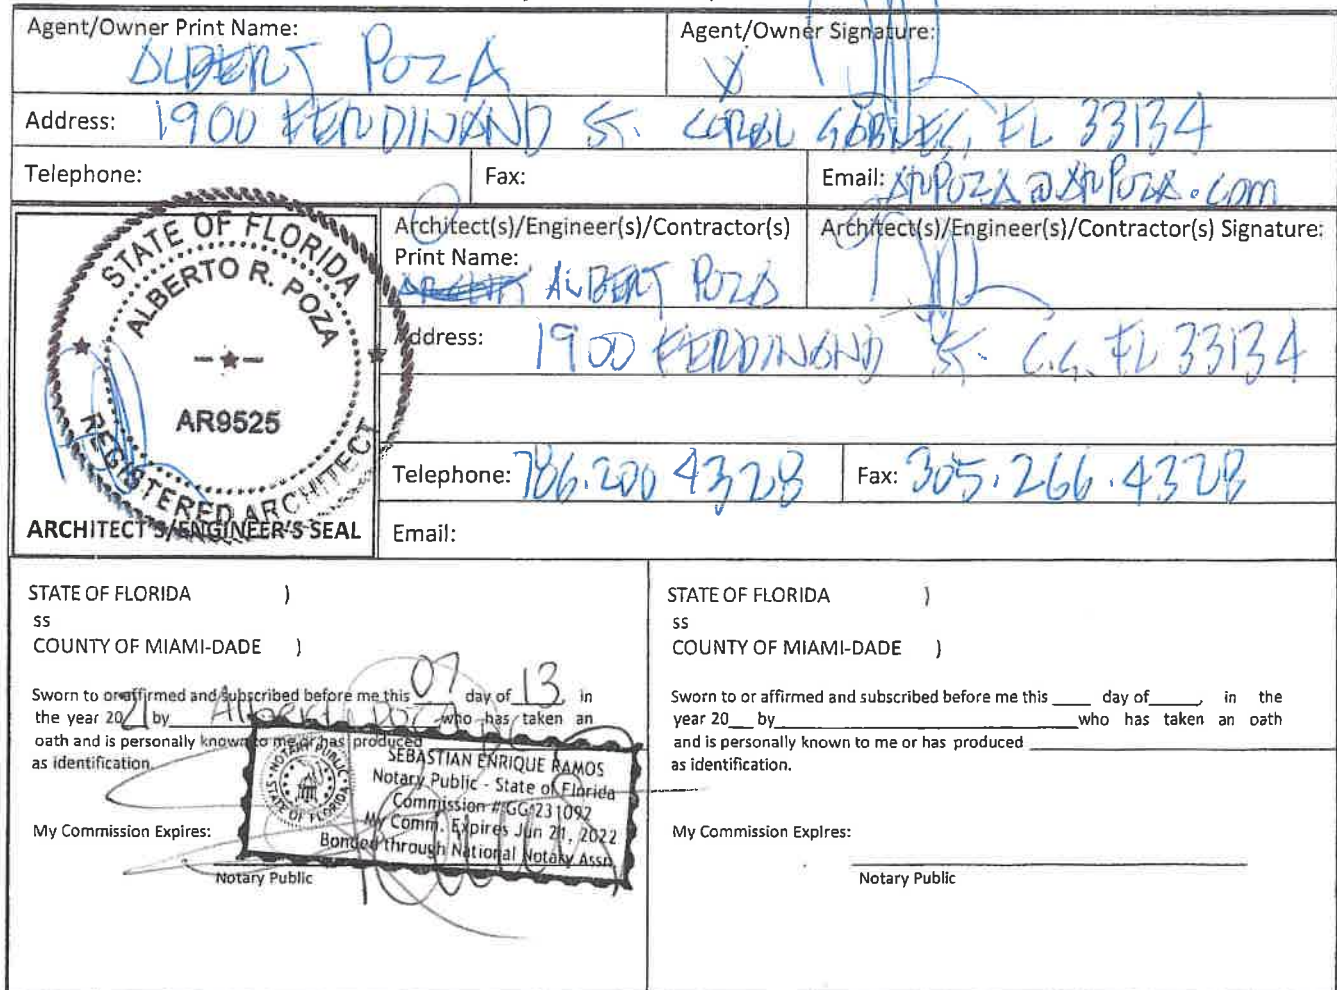 Agent/Owner Print Name:
ALBERT POZA
Agent/Owner Signature:
X
Address: 1900 FERDINAND ST. CORAL GABLES, FL 33134
Telephone:
Fax:
Email: ARPOZA@ARPOZA.com
STATE OF FLORIDA
ALBERTO R. POZA
AR9525
REGISTERED ARCHITECT
ARCHITECT'S/ENGINEER'S SEAL
Architect(s)/Engineer(s)/Contractor(s)
Print Name:
ALBERT POZA
Architect(s)/Engineer(s)/Contractor(s) Signature:
Address: 1900 FERDINAND ST. C.G. FL 33134
Telephone: 786.200 4328
Fax: 305.266.4328
Email:
STATE OF FLORIDA )
ss
COUNTY OF MIAMI-DADE )
Sworn to or affirmed and subscribed before me this 07 day of 13, in
the year 2021 by Alberto Poza who has taken an
oath and is personally known to me or has produced
as identification.
NOTARY PUBLIC
STATE OF FLORIDA
SEBASTIAN ENRIQUE RAMOS
Notary Public - State of Florida
Commission # GG 231092
My Comm. Expires Jun 21, 2022
Bonded through National Notary Assn.
My Commission Expires:
Notary Public
STATE OF FLORIDA )
ss
COUNTY OF MIAMI-DADE )
Sworn to or affirmed and subscribed before me this ____ day of_____, in the
year 20__ by____ who has taken an oath
and is personally known to me or has produced ____
as identification.
My Commission Expires:
Notary Public